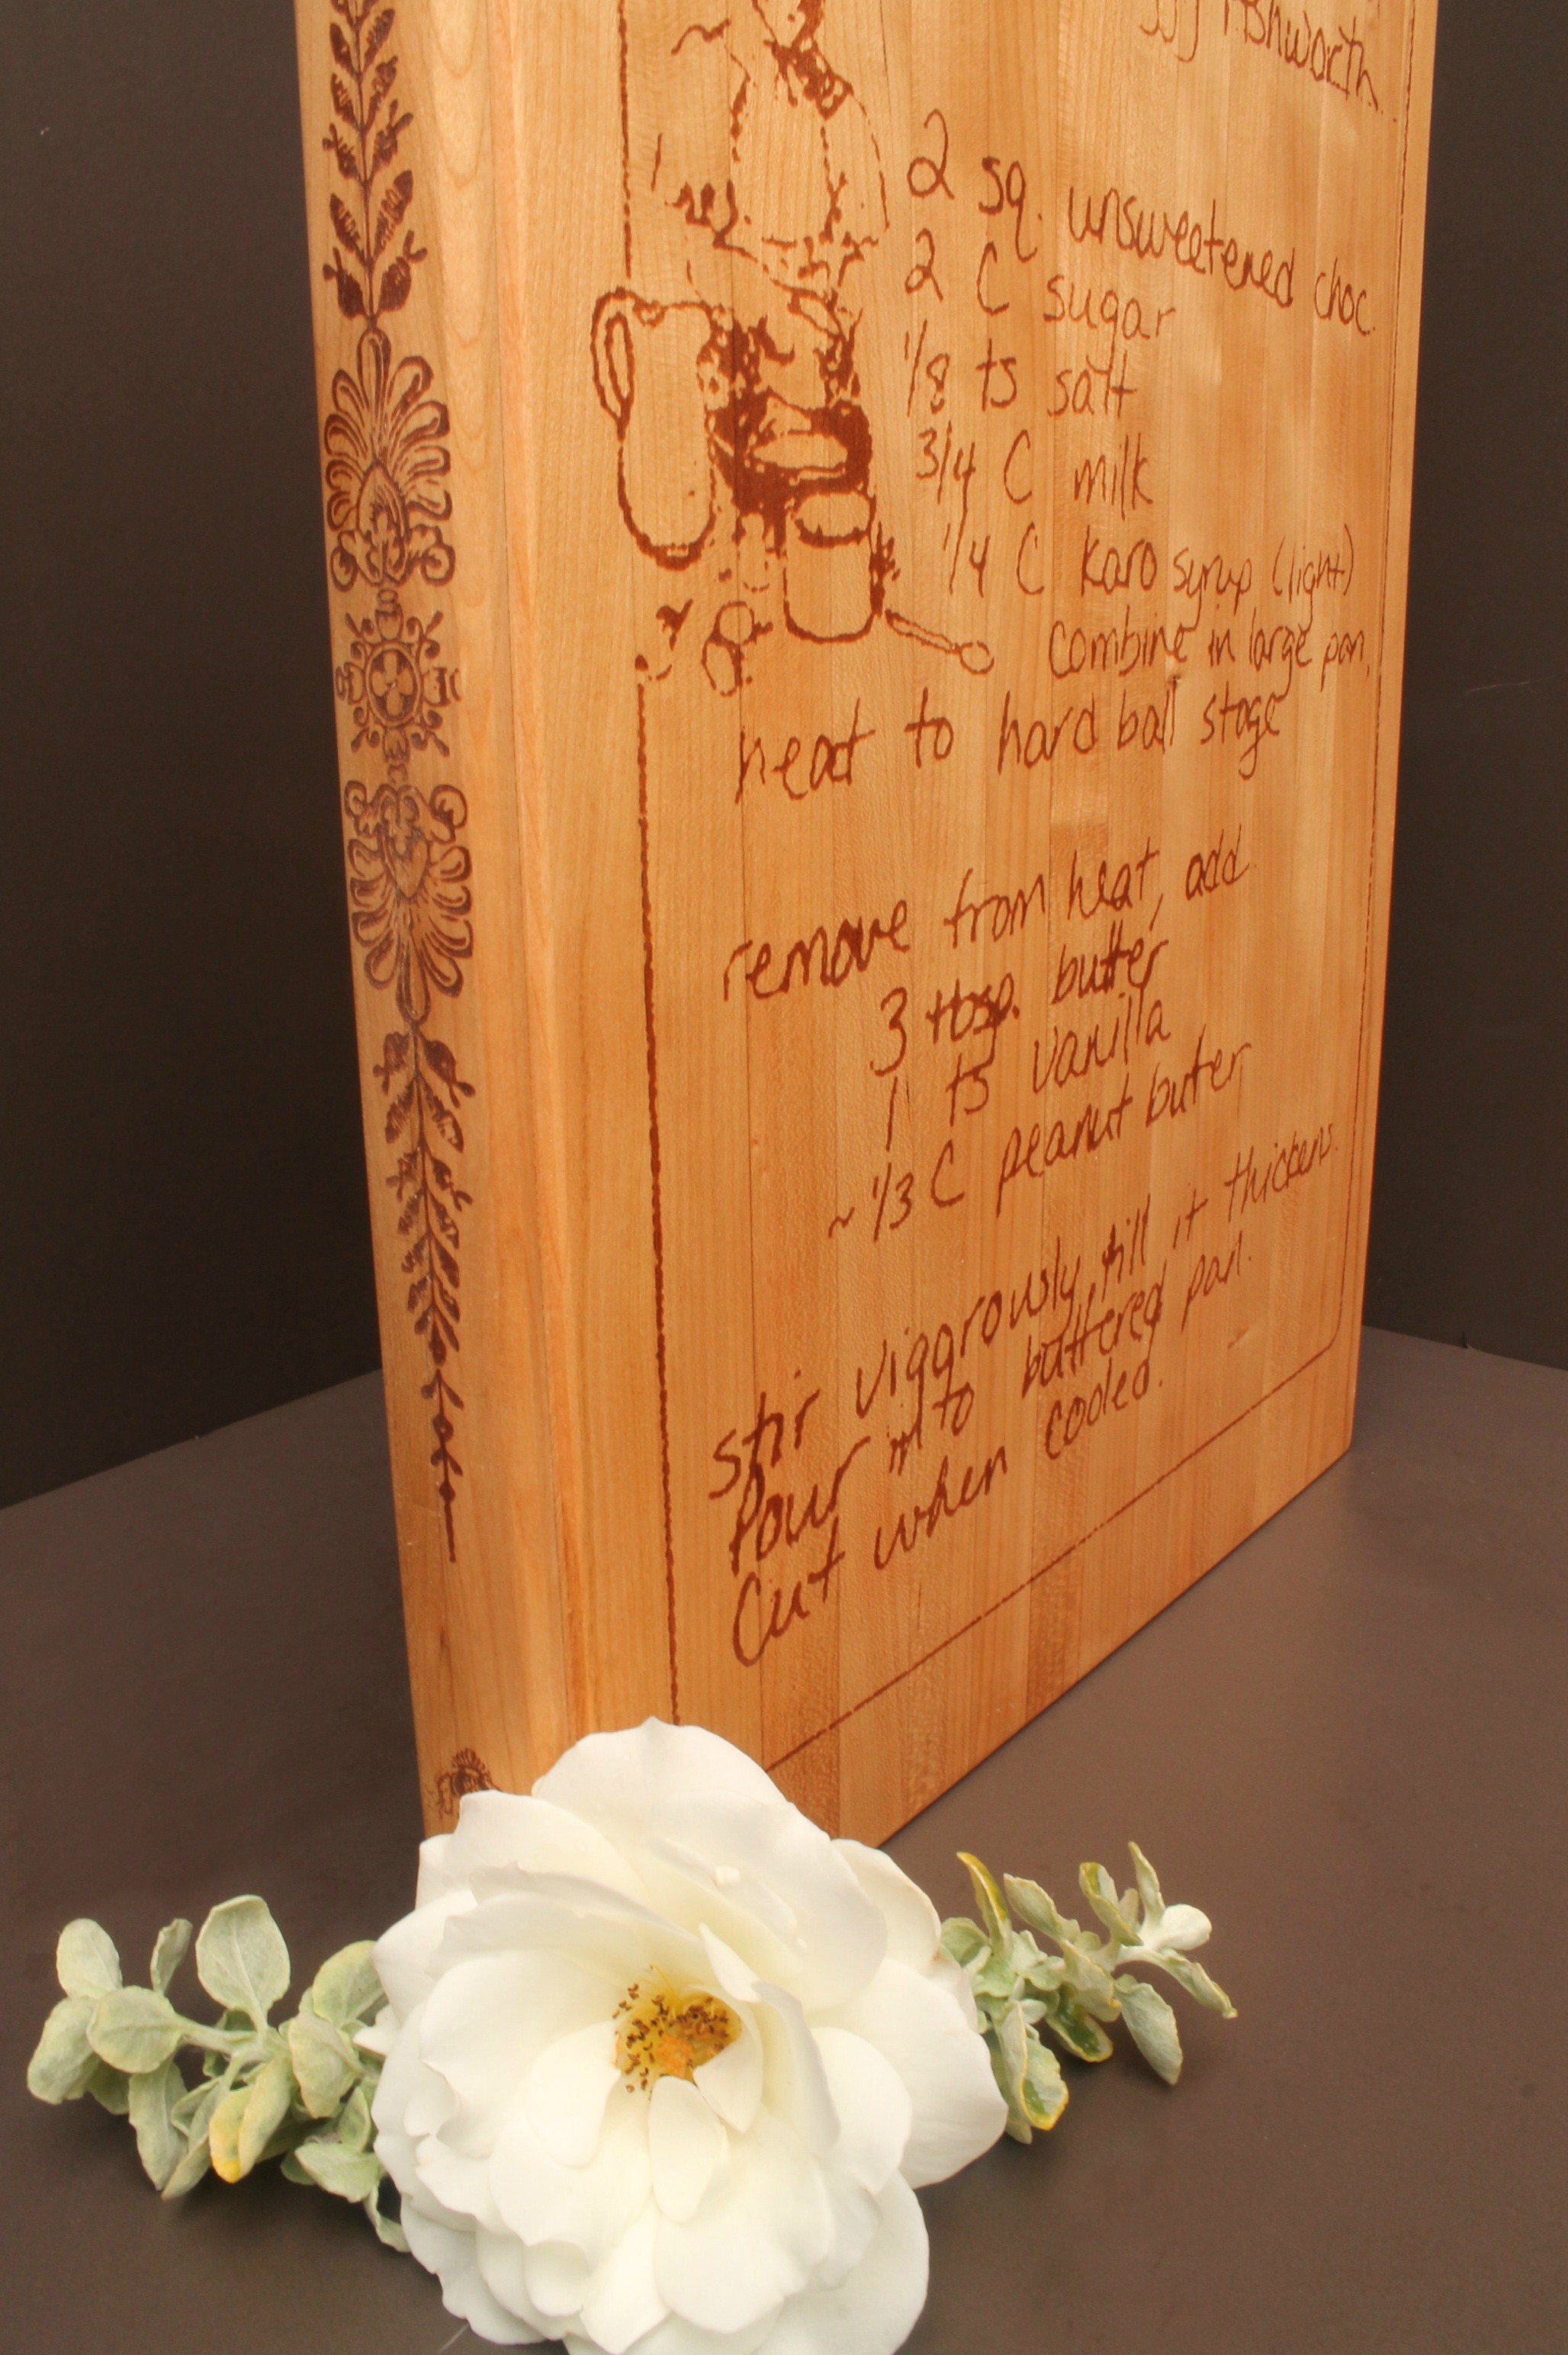 Ashworth
2 sq. unsweetened choc.
2 C sugar
1/8 ts salt
3/4 C milk
1/4 C karo syrup (light)
combine in large pan,
heat to hard ball stage
remove from heat, add
3 tbsp. butter
1 ts vanilla
~1/3 C peanut butter
stir viggrously till it thickens.
Pour into buttered pan.
Cut when cooled.